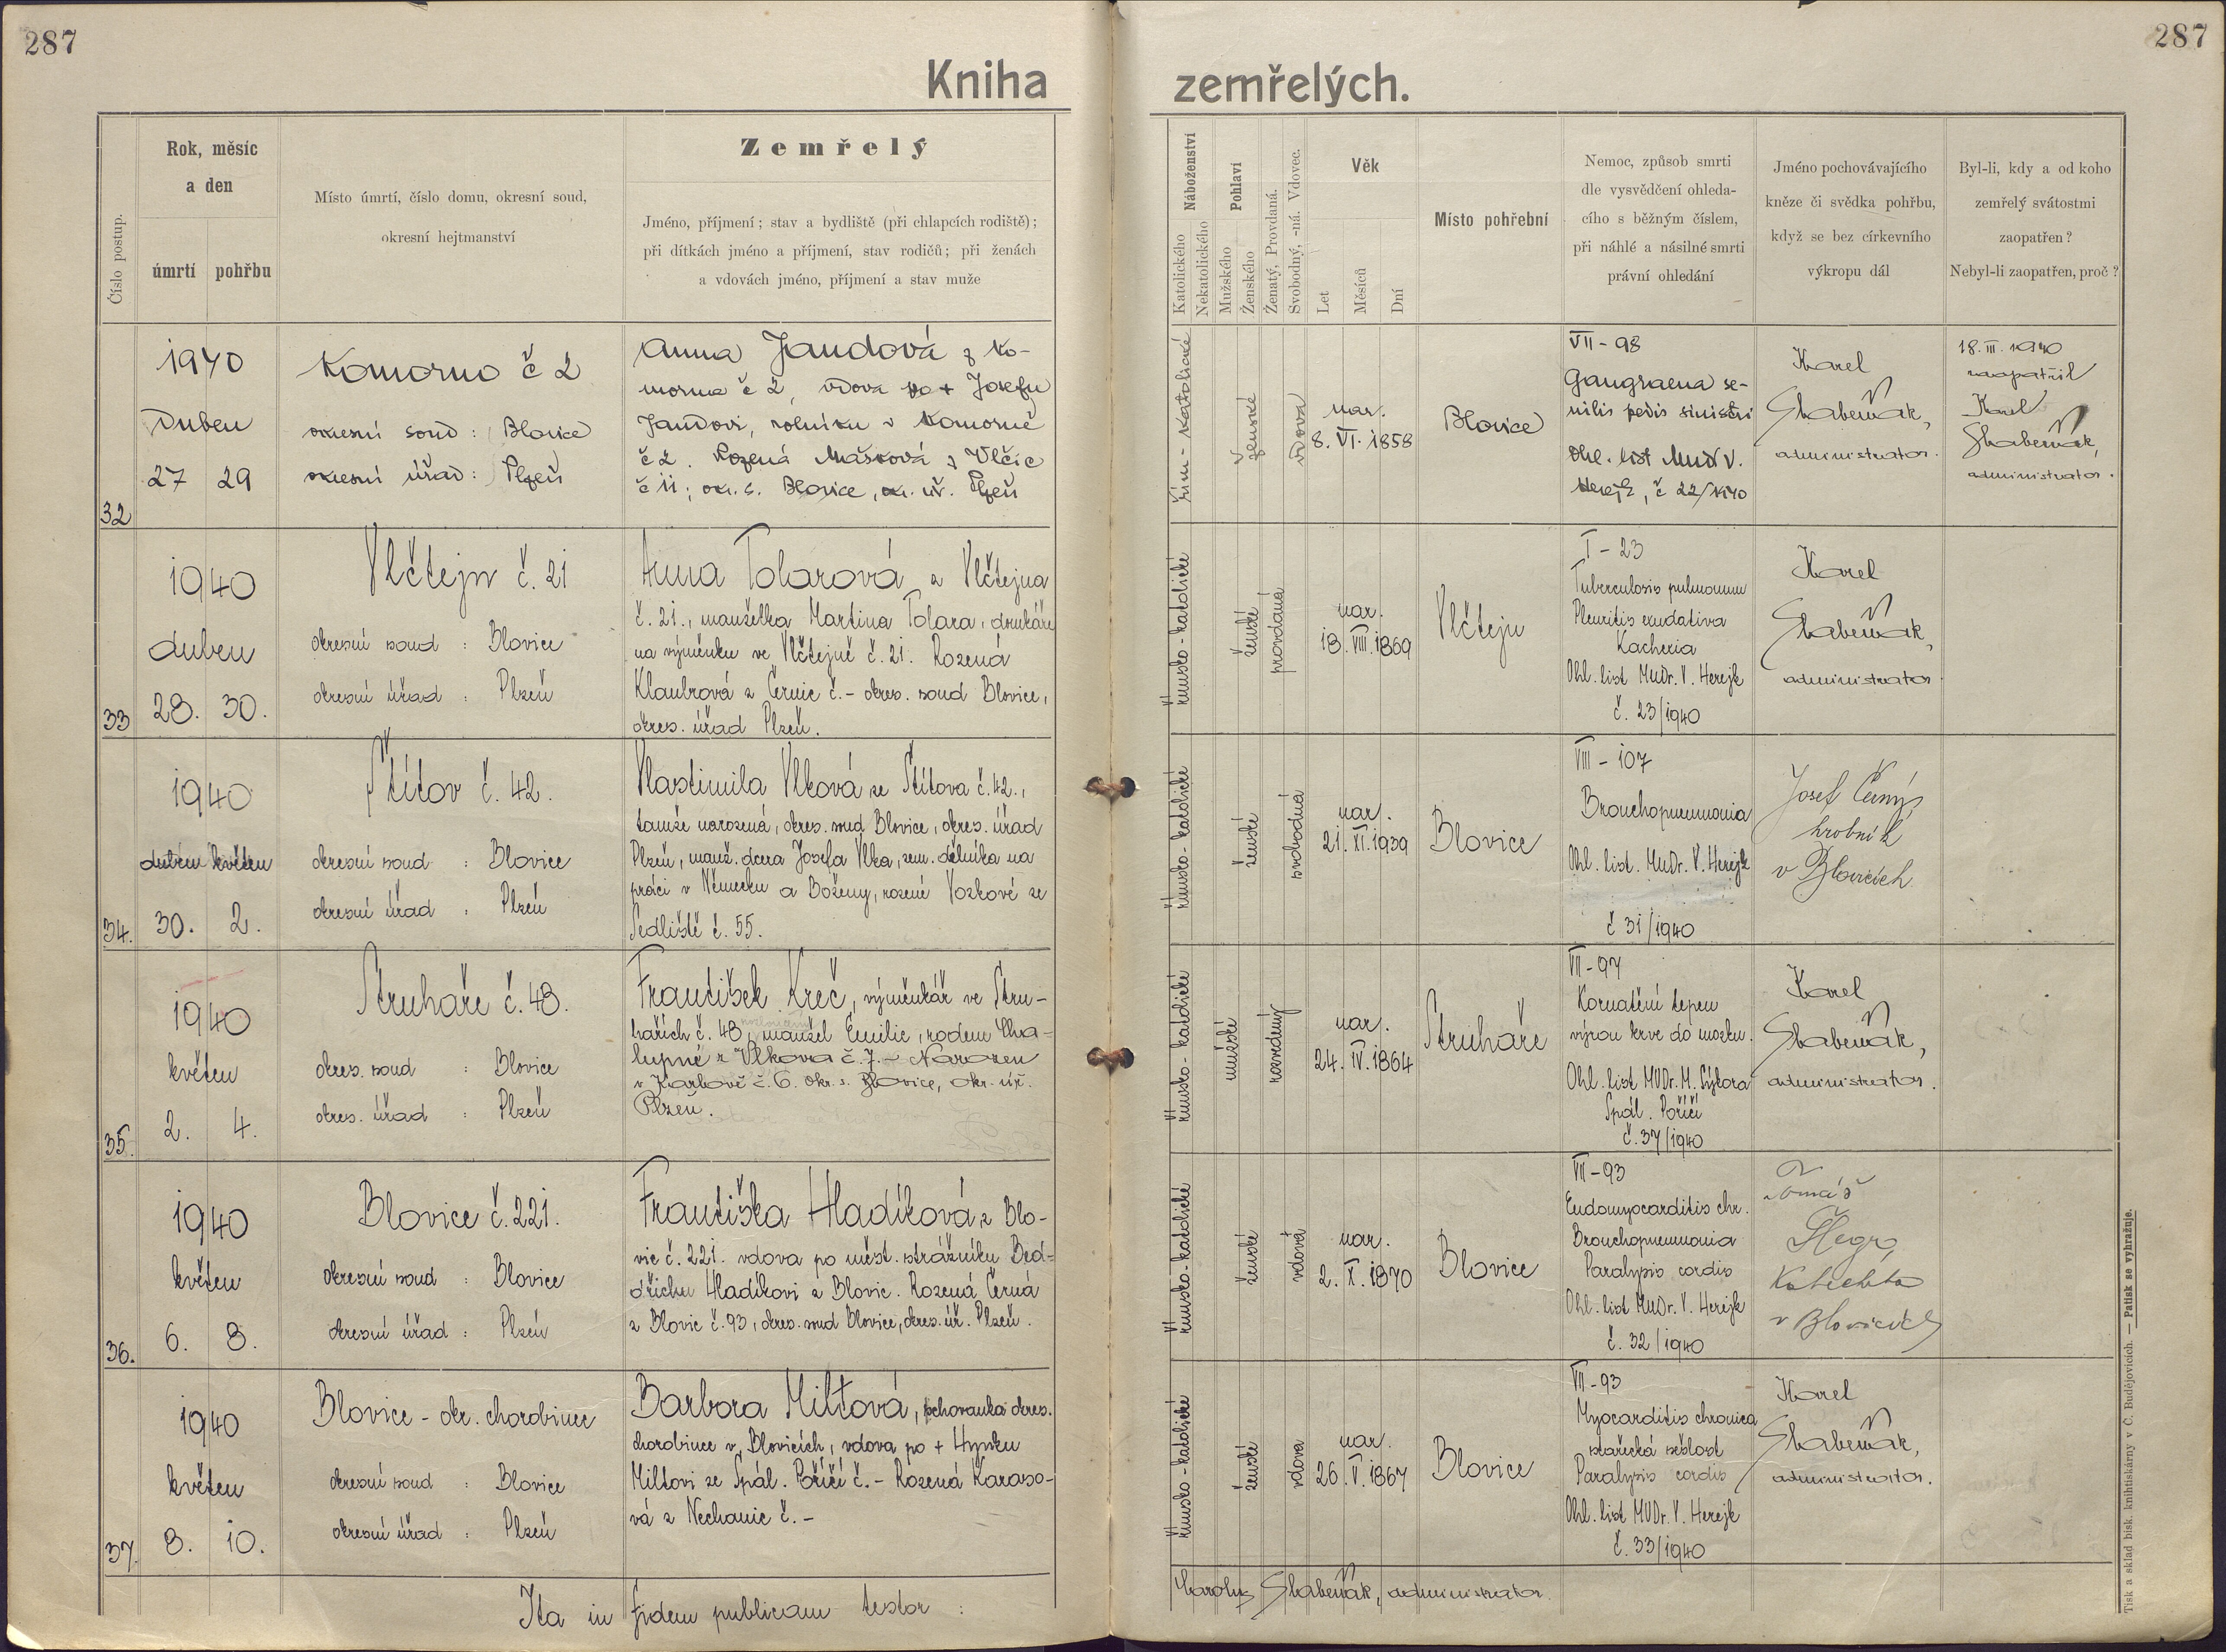 287
287
Kniha zemřelých.
Číslo postup.
Rok, měsíc
a den
úmrtí pohřbu
Místo úmrtí, číslo domu, okresní soud,
okresní hejtmanství
Zemřelý
Jméno, příjmení; stav a bydliště (při chlapcích rodiště);
při dítkách jméno a příjmení, stav rodičů; při ženách
a vdovách jméno, příjmení a stav muže
Náboženství
Katolického
Nekatolického
Pohlaví
Mužského
Ženského
Ženatý, Provdaná.
Svobodný, -ná. Vdovec.
Věk
Let
Měsíců
Dní
Místo pohřební
Nemoc, způsob smrti
dle vysvědčení ohleda-
cího s běžným číslem,
při náhlé a násilné smrti
právní ohledání
Jméno pochovávajícího
kněze či svědka pohřbu,
když se bez církevního
výkropu dál
Byl-li, kdy a od koho
zemřelý svátostmi
zaopatřen?
Nebyl-li zaopatřen, proč?
32
1940
Duben
27 29
Komorno č 2
okresní soud: Blovice
okresní úřad: Plzeň
Anna Jandová z Ko-
morna č 2, vdova po + Josefu
Jandovi, rolníku v Komorně
č 2. Rozená Mašková z Vlčic
č 11; okr. s. Blovice, okr. úř. Plzeň
řím-katolické
ženské
vdova
nar.
8. VI. 1858
Blovice
VII - 98
Gangraena se-
nilis pedis sinistri
Ohl. list MUDr V.
Herejk, č 22/1940
Karel
Skabeňák,
administrator.
18. III. 1940
zaopatřil
Karel
Skabeňák,
administrator.
33
1940
duben
28. 30.
Vlčtejn č. 21
okresní soud : Blovice
okresní úřad : Plzeň
Anna Tolarová z Vlčtejna
č. 21., manželka Martina Tolara, domkáře
na výměnku ve Vlčtejně č. 21. Rozená
Klaubrová z Černic č. - okres. soud Blovice,
okres. úřad Plzeň.
římsko-katolické
ženské
provdaná
nar.
18. VIII. 1869
Vlčtejn
I - 23
Tuberculosis pulmonum
Pleuritis exudativa
Kachexia
Ohl. list MUDr. V. Herejk
č. 23/1940
Karel
Skabeňák,
administrator
34.
1940
duben květen
30. 2.
Štítov č. 42.
okresní soud : Blovice
okresní úřad : Plzeň
Vlastimila Vlková ze Štítova č. 42.,
tamže narozená, okres. soud Blovice, okres. úřad
Plzeň, manž. dcera Josefa Vlka, zem. dělníka na
práci v Německu a Boženy, rozené Voskové ze
Sedliště č. 55.
římsko-katolické
ženské
svobodná
nar.
21. XI. 1939
Blovice
VIII - 107
Bronchopneumonia
Ohl. list. MUDr. V. Herejk
č 31/1940
Josef Černý,
hrobník
v Blovicích
35.
1940
květen
2. 4.
Struhaře č. 48.
okres. soud : Blovice
okres. úřad : Plzeň
František Kreč, výměnkář ve Stru-
hařích č. 48, manžel Emilie, rodem Cha-
lupné z Vlkova č. 7. - Narozen
v Karlově č. 6. okr. s. Blovice, okr. úř.
Plzeň.
římsko-katolické
mužské
rozvedený
nar.
24. IV. 1864
Struhaře
VII - 97
Kornatění tepen
výron krve do mozku.
Ohl. list MUDr. M. Sýkora
Spál. Poříčí
č. 37/1940
Karel
Skabeňák,
administrator.
36.
1940
květen
6. 8.
Blovice č. 221.
okresní soud : Blovice
okresní úřad : Plzeň
Františka Hladíková z Blo-
vic č. 221. vdova po měst. strážníku Bed-
řichu Hladíkovi z Blovic. Rozená Černá
z Blovic č. 93, okres. soud Blovice, okres. úř. Plzeň.
římsko-katolické
ženské
vdova
nar.
2. X. 1870
Blovice
VII - 93
Endomyocarditis chr.
Bronchopneumonia
Paralysis cordis
Ohl. list MUDr. V. Herejk
č. 32/1940
Tomáš
katecheta
v Blovicích
37.
1940
květen
8. 10.
Blovice - okr. chorobinec
okresní soud : Blovice
okresní úřad : Plzeň
Barbora Miltová, schovanka okres.
chorobince v Blovicích, vdova po + Hynku
Miltovi ze Spál. Poříčí č. - Rozená Karaso-
vá z Nechanic č. -
římsko-katolické
ženské
vdova
nar.
26. V. 1867
Blovice
VII - 93
Myocarditis chronica
stařecká sešlost
Paralysis cordis
Ohl. list MUDr. V. Herejk
č. 33/1940
Karel
Skabeňák,
administrator.
Ita in fidem publicam testor :
Carolus Skabeňák, administrator.
Tisk a sklad bisk. knihtiskárny v Č. Budějovicích. — Patisk se vyhražuje.